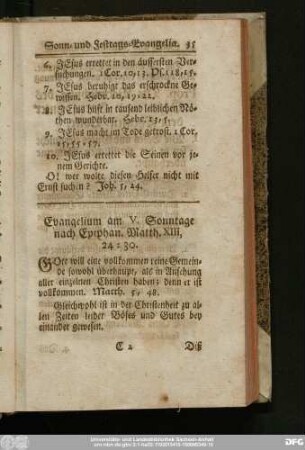 Sonn- und Festtags-Evangelia. 35
6. JEsus errettet in den äussersten Ver-
suchungen. 1 Cor. 10, 13. Ps. 118, 15.
7. JEsus beruhigt das erschrockne Ge-
wissen. Hebr. 10, 19-22.
8. JEsus hilft in tausend leiblichen Nö-
then wunderbar. Hebr. 13, 5.
9. JEsus macht im Tode getrost. 1 Cor.
15, 55-57.
10. JEsus errettet die Seinen vor je-
nem Gerichte.
O! wer wolte diesen Helfer nicht mit
Ernst suchen? Joh. 5, 24.
Evangelium am V. Sonntage
nach Epiphan. Matth. XIII,
24-30.
GOtt will eine vollkommen reine Gemein-
de sowohl überhaupt, als in Ansehung
aller einzelnen Christen haben: denn er ist
vollkommen. Matth. 5, 48.
Gleichwohl ist in der Christenheit zu al-
len Zeiten leider Böses und Gutes bey
einander gewesen.
C 2 Diß